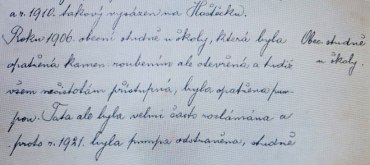 a r. 1910. takový vysázen na Hošťičku.
Roku 1906. obecní studně u školy, která byla
opatřena kamen. roubením ale otevřená, a tudíž
všem nečistotám přístupná, byla opatřena pum-
pou. Tato ale byla velmi často rozlámána a
proto r. 1921. byla pumpa odstraněna, studně
Obec. studně
u školy.